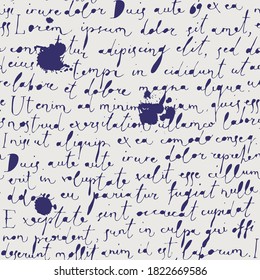 s irure dolor Duis aute ex ea com
Lorem ipsum dolor sit amet,
tur adipiscing elit, sed
eius tempor in cididunt ut
elabore et dolore magna aliqu
e Ut enim ad minim veniam, quis ess
s nostrud exercitation ullamco
l nisi ut aliquip ex ea commodo conse
Duis aute irure dolor reprehen
erit in voluptate velit esse cillum
dolore eu pariatur fugiat nulla
Excepteur sint occaecat cupidat
non proident, sunt in culpa qui offi
deserunt mollit anim id est laborum.
shutterstock.com · 1822669586